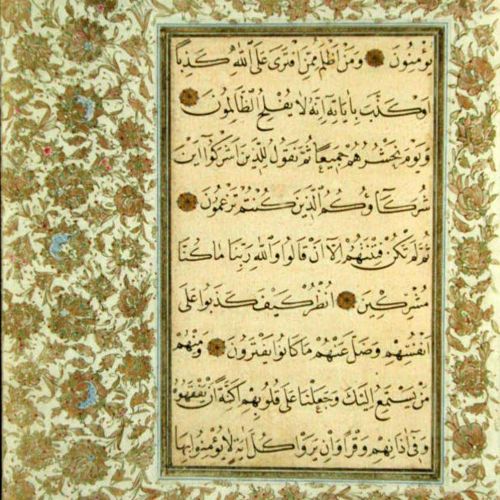 يؤمنون ومن اظلم ممن افترى على الله كذبا
او كذب باياته انه لا يفلح الظالمون
ويوم نحشرهم جميعا ثم نقول للذين اشركوا اين
شركاؤكم الذين كنتم تزعمون
ثم لم تكن فتنتهم الا ان قالوا والله ربنا ما كنا
مشركين انظر كيف كذبوا على
انفسهم وضل عنهم ما كانوا يفترون ومنهم
من يستمع اليك وجعلنا على قلوبهم اكنة ان يفقهوه
وفى اذانهم وقرا وان يروا كل اية لا يؤمنوا بها